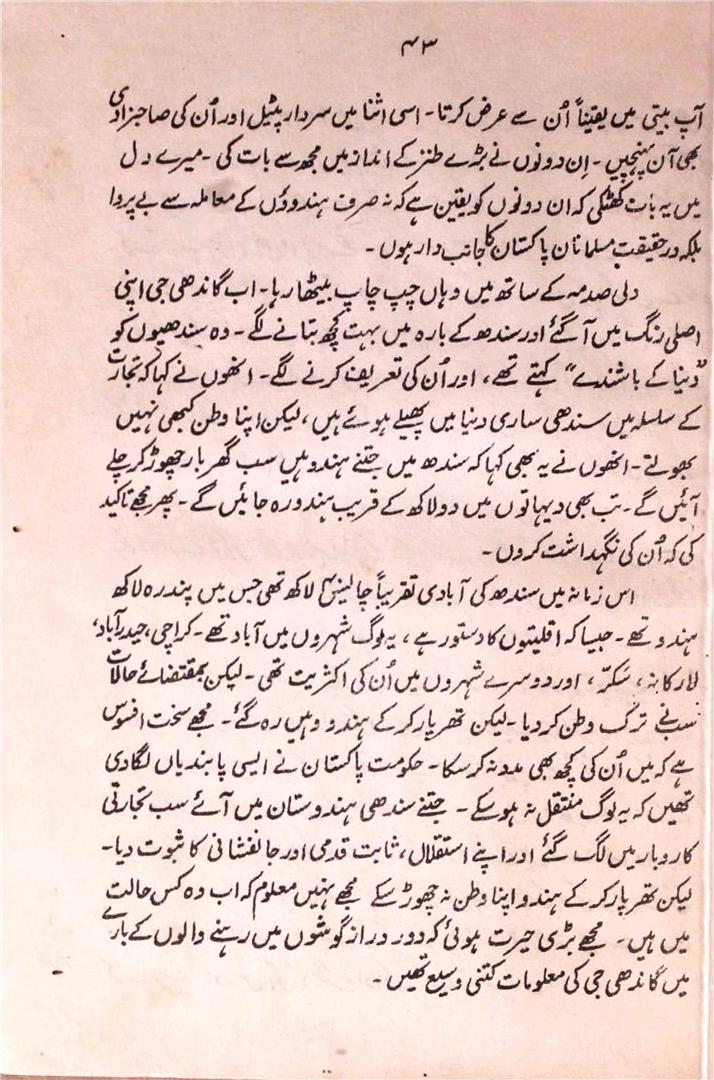 ۴۳
آپ بیتی میں یقیناً اُن سے عرض کرتا۔ اسی اثنا میں سردار پٹیل اور اُن کی صاحبزادی
بھی آن پہنچیں۔ اِن دونوں نے بڑے طنز کے انداز میں مجھ سے بات کی۔ میرے دل
میں یہ بات کھٹکی کہ ان دونوں کو یقین ہے کہ نہ صرف ہندوؤں کے معاملہ سے بے پروا
بلکہ درحقیقت مسلمانان پاکستان کا جانب دار ہوں۔
دلی صدمہ کے ساتھ میں وہاں چپ چاپ بیٹھا رہا۔ اب گاندھی جی اپنی
اصلی رنگ میں آ گئے اور سندھ کے بارہ میں بہت کچھ بتانے لگے۔ وہ سندھیوں کو
”دنیا کے باشندے“ کہتے تھے، اور اُن کی تعریف کرنے لگے۔ انھوں نے کہا کہ تجارت
کے سلسلہ میں سندھی ساری دنیا میں پھیلے ہوئے ہیں، لیکن اپنا وطن کبھی نہیں
بھولتے۔ انھوں نے یہ بھی کہا کہ سندھ میں جتنے ہندو ہیں سب گھر بار چھوڑ کر چلے
آئیں گے۔ تب بھی دیہاتوں میں دو لاکھ کے قریب ہندو رہ جائیں گے۔ پھر مجھے تاکید
کی کہ اُن کی نگہداشت کروں۔
اس زمانہ میں سندھ کی آبادی تقریباً چالیس لاکھ تھی جس میں پندرہ لاکھ
ہندو تھے۔ جیسا کہ اقلیتوں کا دستور ہے، یہ لوگ شہروں میں آباد تھے۔ کراچی، حیدرآباد،
لارکانہ، سکّر، اور دوسرے شہروں میں اُن کی اکثریت تھی۔ لیکن بمقتضائے حالات
سب نے ترک وطن کر دیا۔ لیکن تھرپارکر کے ہندو وہیں رہ گئے۔ مجھے سخت افسوس
ہے کہ میں اُن کی کچھ بھی مدد نہ کر سکا۔ حکومت پاکستان نے ایسی پابندیاں لگا دی
تھیں کہ یہ لوگ منتقل نہ ہو سکے۔ جتنے سندھی ہندوستان میں آئے سب تجارتی
کاروبار میں لگ گئے اور اپنے استقلال، ثابت قدمی اور جانفشانی کا ثبوت دیا۔
لیکن تھرپارکر کے ہندو اپنا وطن نہ چھوڑ سکے مجھے نہیں معلوم کہ اب وہ کس حالت
میں ہیں۔ مجھے بڑی حیرت ہوئی کہ دور دراز گوشوں میں رہنے والوں کے بارے
میں گاندھی جی کی معلومات کتنی وسیع تھیں۔